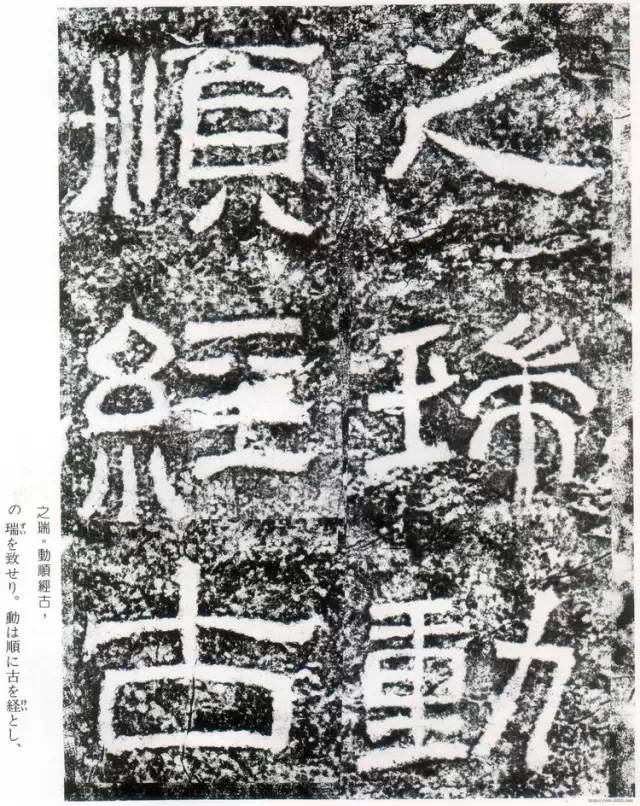 之瑞動
順經古
之瑞。動順經古，
の瑞を致せり。動は順に古を経とし、
ずい
けい